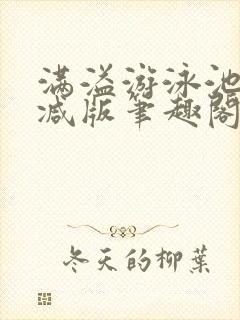 满溢游泳池
减版笔趣阁
冬天的柳葉